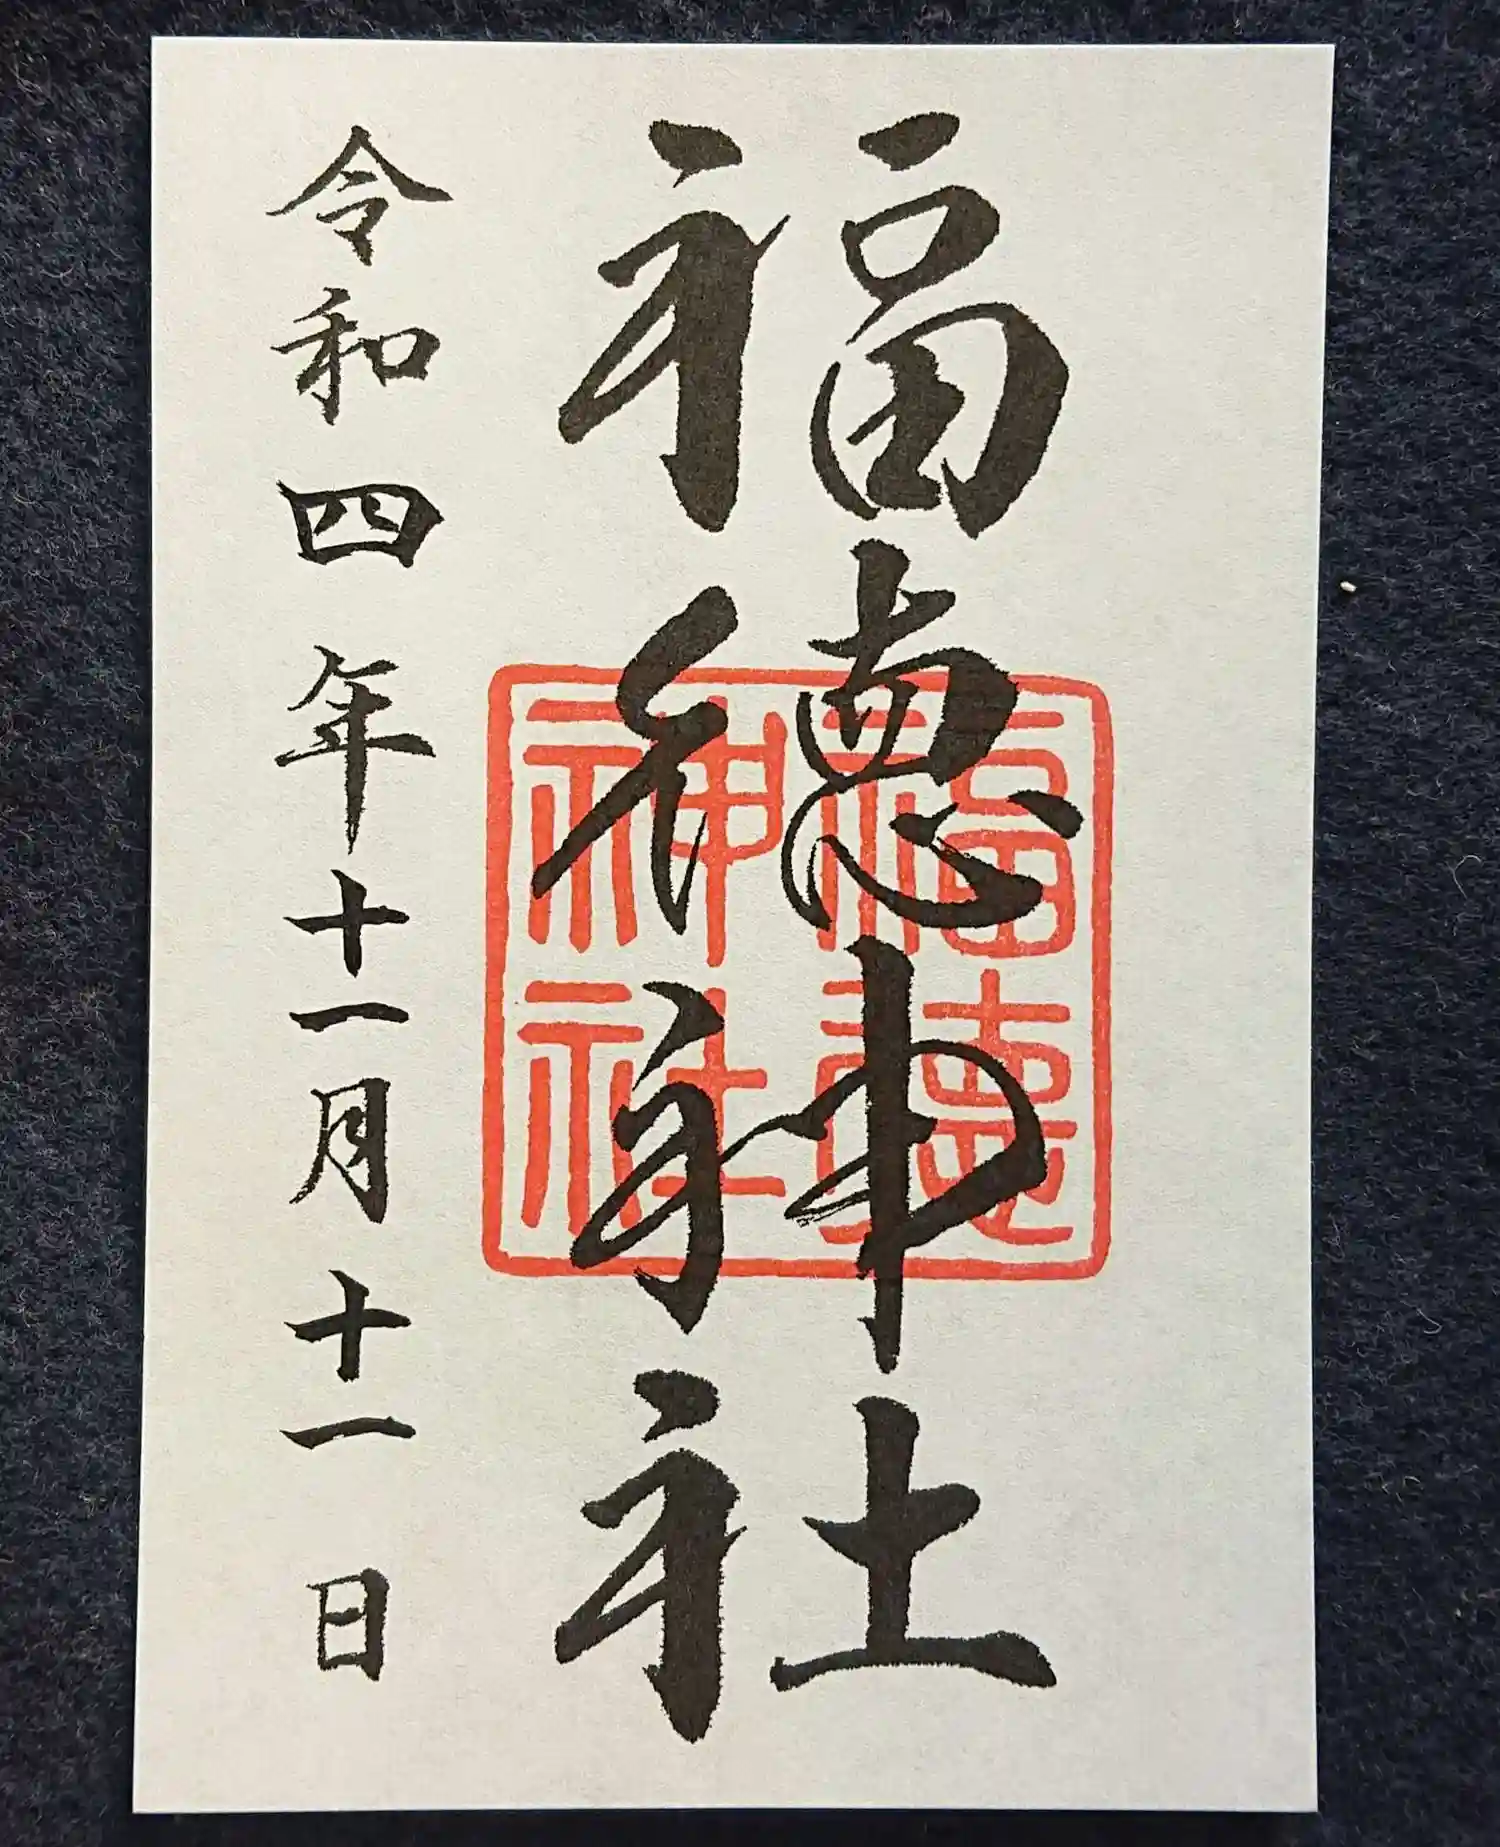 福徳神社
福徳
神社
令和四年十一月十一日